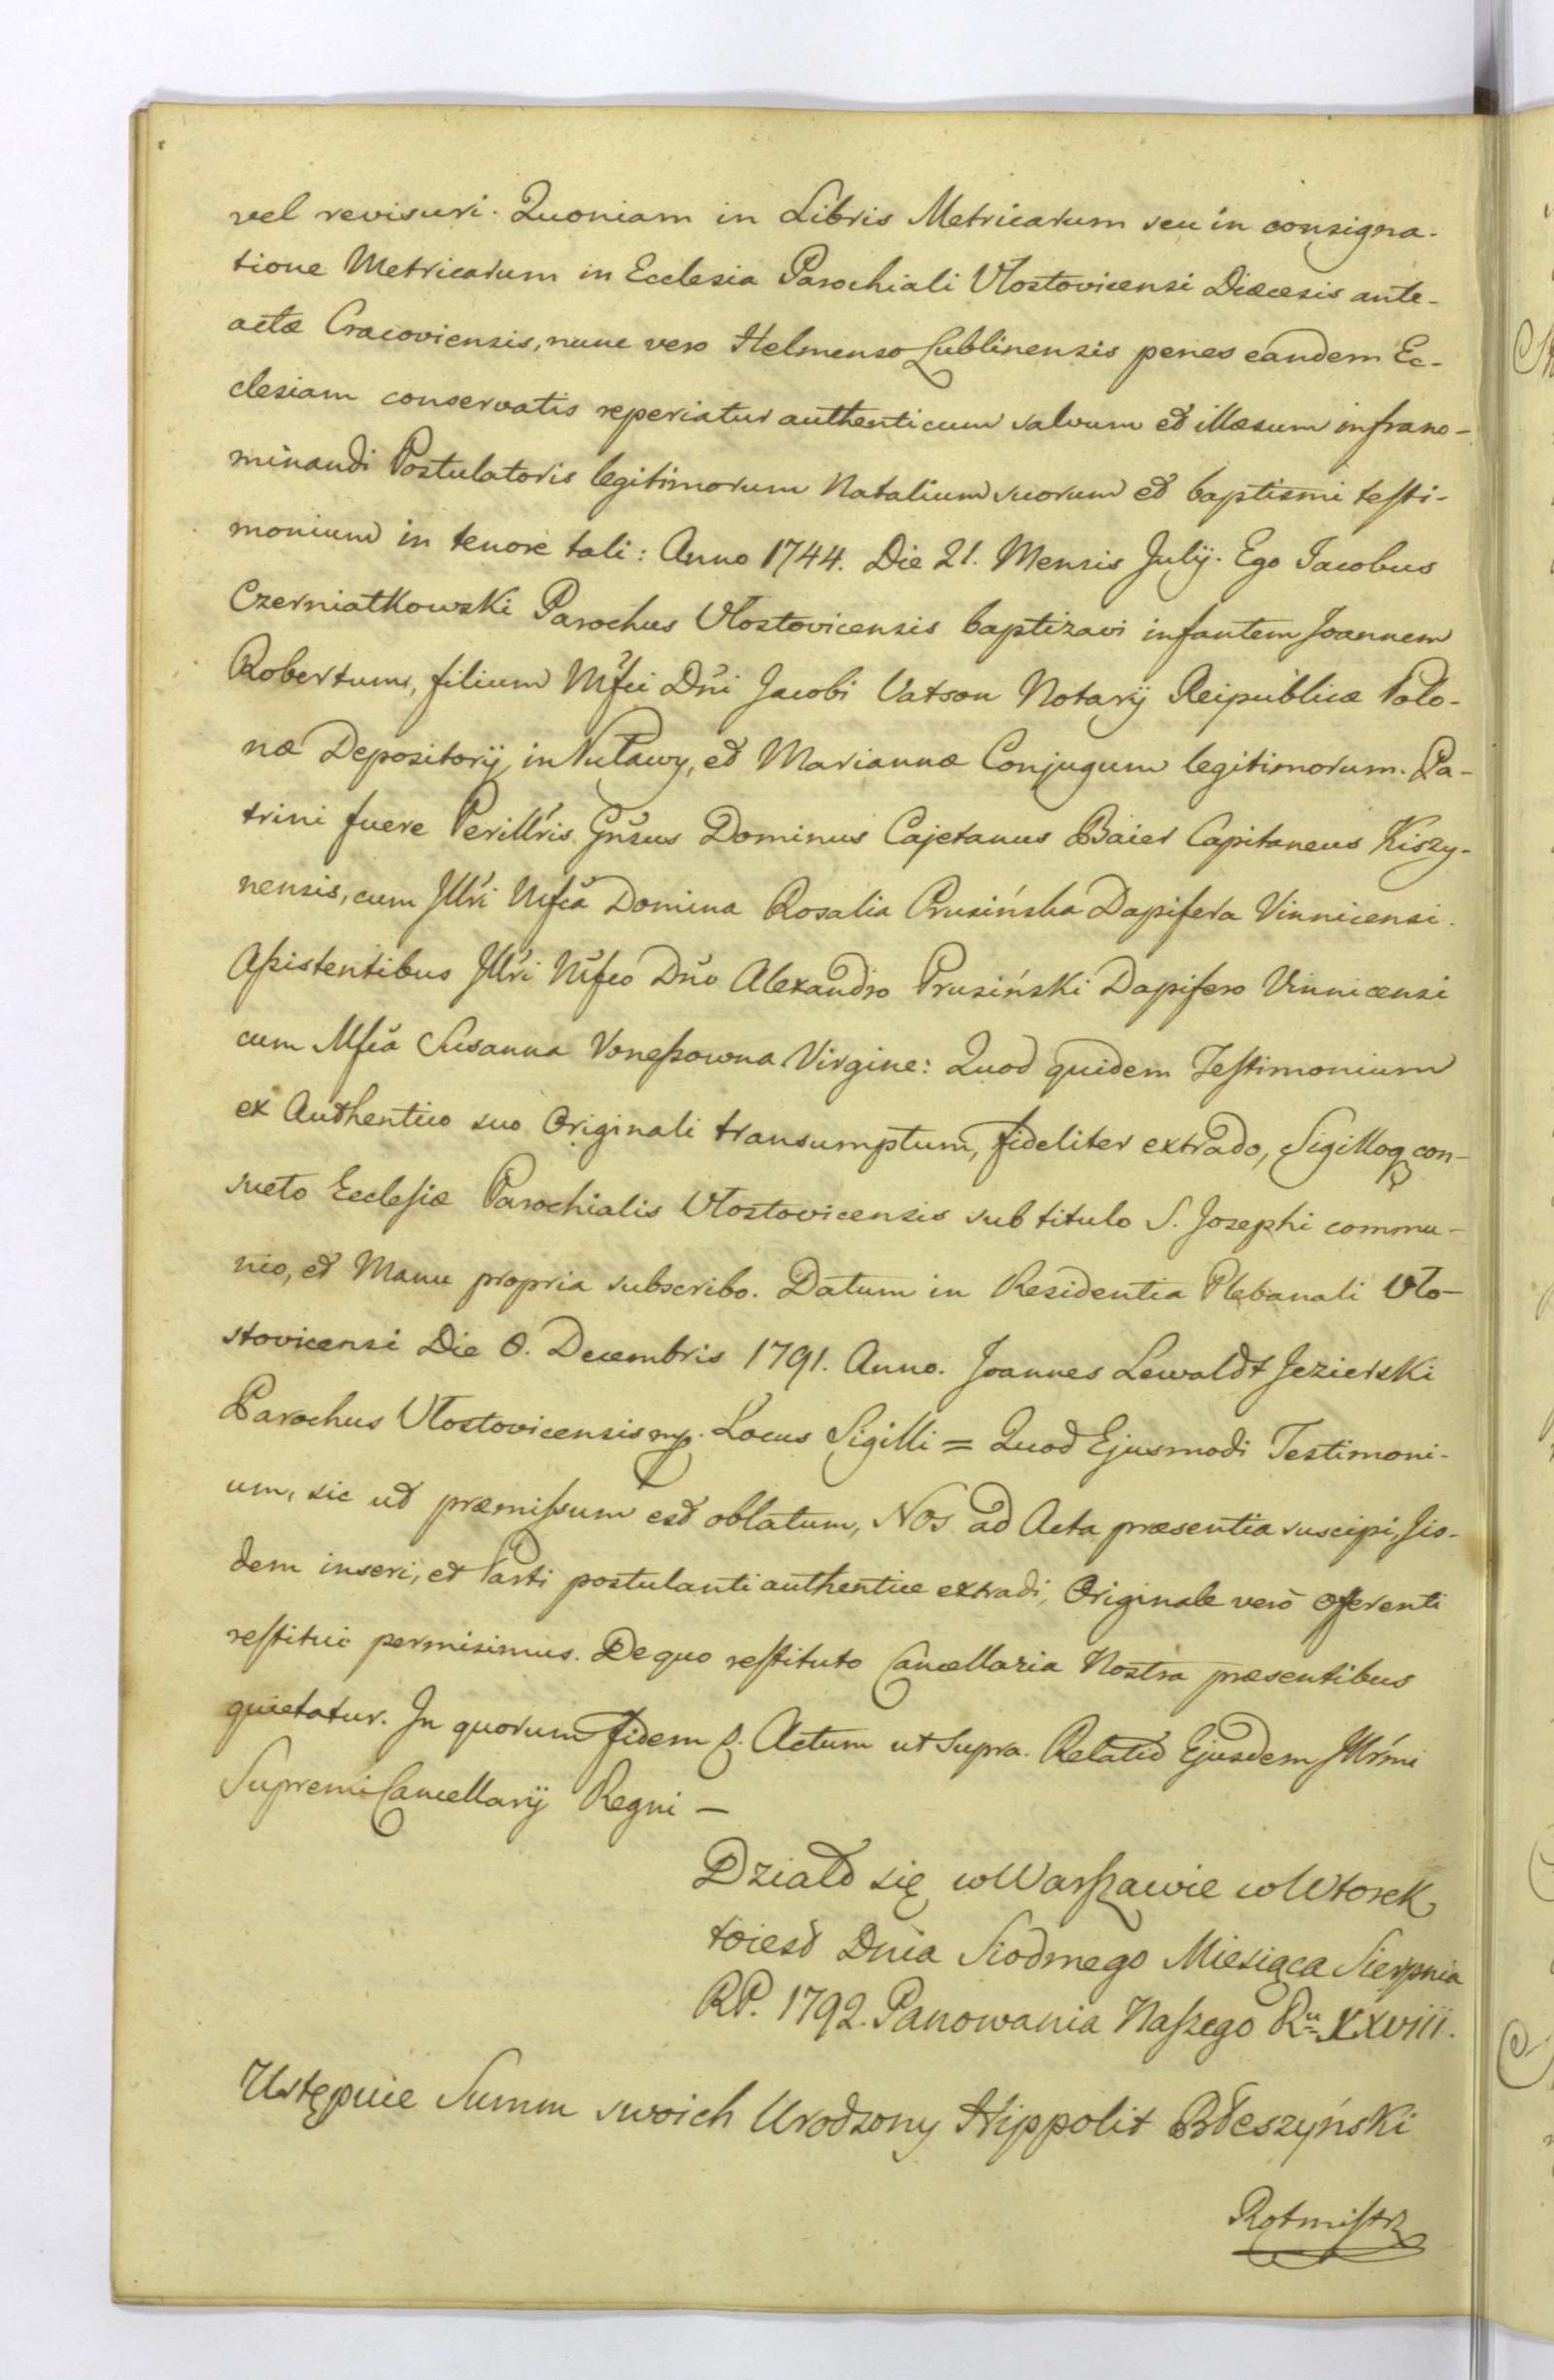 vel revisuri. Quoniam in Libris Metricarum seu in consigna-
tione Metricarum in Ecclesia Parochiali Vłostovicensi Diæcesis ante-
actæ Cracoviensis, nunc vero Helmenso Lublinensis penes eandem Ec-
clesiam conservatis reperiatur authenticum salvum et illæsum infrano-
minandi Postulatoris legitimorum Natalium suorum et baptismi testi-
monium in tenore tali: Anno 1744. Die 21. Mensis Julij. Ego Jacobus
Czerniatkowski Parochus Vłostovicensis baptizavi infantem Joannem
Robertum, filium Mfci Dñi Jacobi Vatson Notarij Reipublicæ Polo-
næ Depositorij in Puławy, et Mariannæ Conjugum legitimorum. Pa-
trini fuere Perillris Gñsus Dominus Cajetanus Baier Capitaneus Kiszy-
nensis, cum Jllri Mfca Domina Rosalia Prusińska Dapifera Vinnicensi.
Assistentibus Jllri Mfco Dño Alexandro Prusiński Dapifero Vinnicensi
cum Mfca Susanna Voneszowna Virgine: Quod quidem Testimonium
ex Authentico suo Originali transumptum, fideliter extrado, Sigilloq con-
sueto Ecclesiæ Parochialis Vłostovicensis sub titulo S. Josephi commu-
nio, et Manu propria subscribo. Datum in Residentia Plebanali Vło-
stovicensi Die 8. Decembris 1791. Anno. Joannes Lewaldt Jezierski
Parochus Vłostovicensis mp. Locus Sigilli = Quod Ejusmodi Testimoni-
um, sic ut præmissum est oblatum, Nos ad Acta præsentia suscipi, Jis-
dem inseri, et Parti postulanti authentice extradi, Originale vero offerenti
restitui permisimus. De quo restituto Cancellaria Nostra præsentibus
quietatur. In quorum fidem &. Actum ut supra. Relatio Ejusdem Jllrmi
Supremi Cancellarij Regni —
Działo się w Warszawie w Wtorek
toiest Dnia Siodmego Miesiąca Sierpnia
RP. 1792. Panowania Naszego Ru XXVIII.
Ustępuie Summ swoich Urodzony Hippolit Błeszyński
Rotmistrz